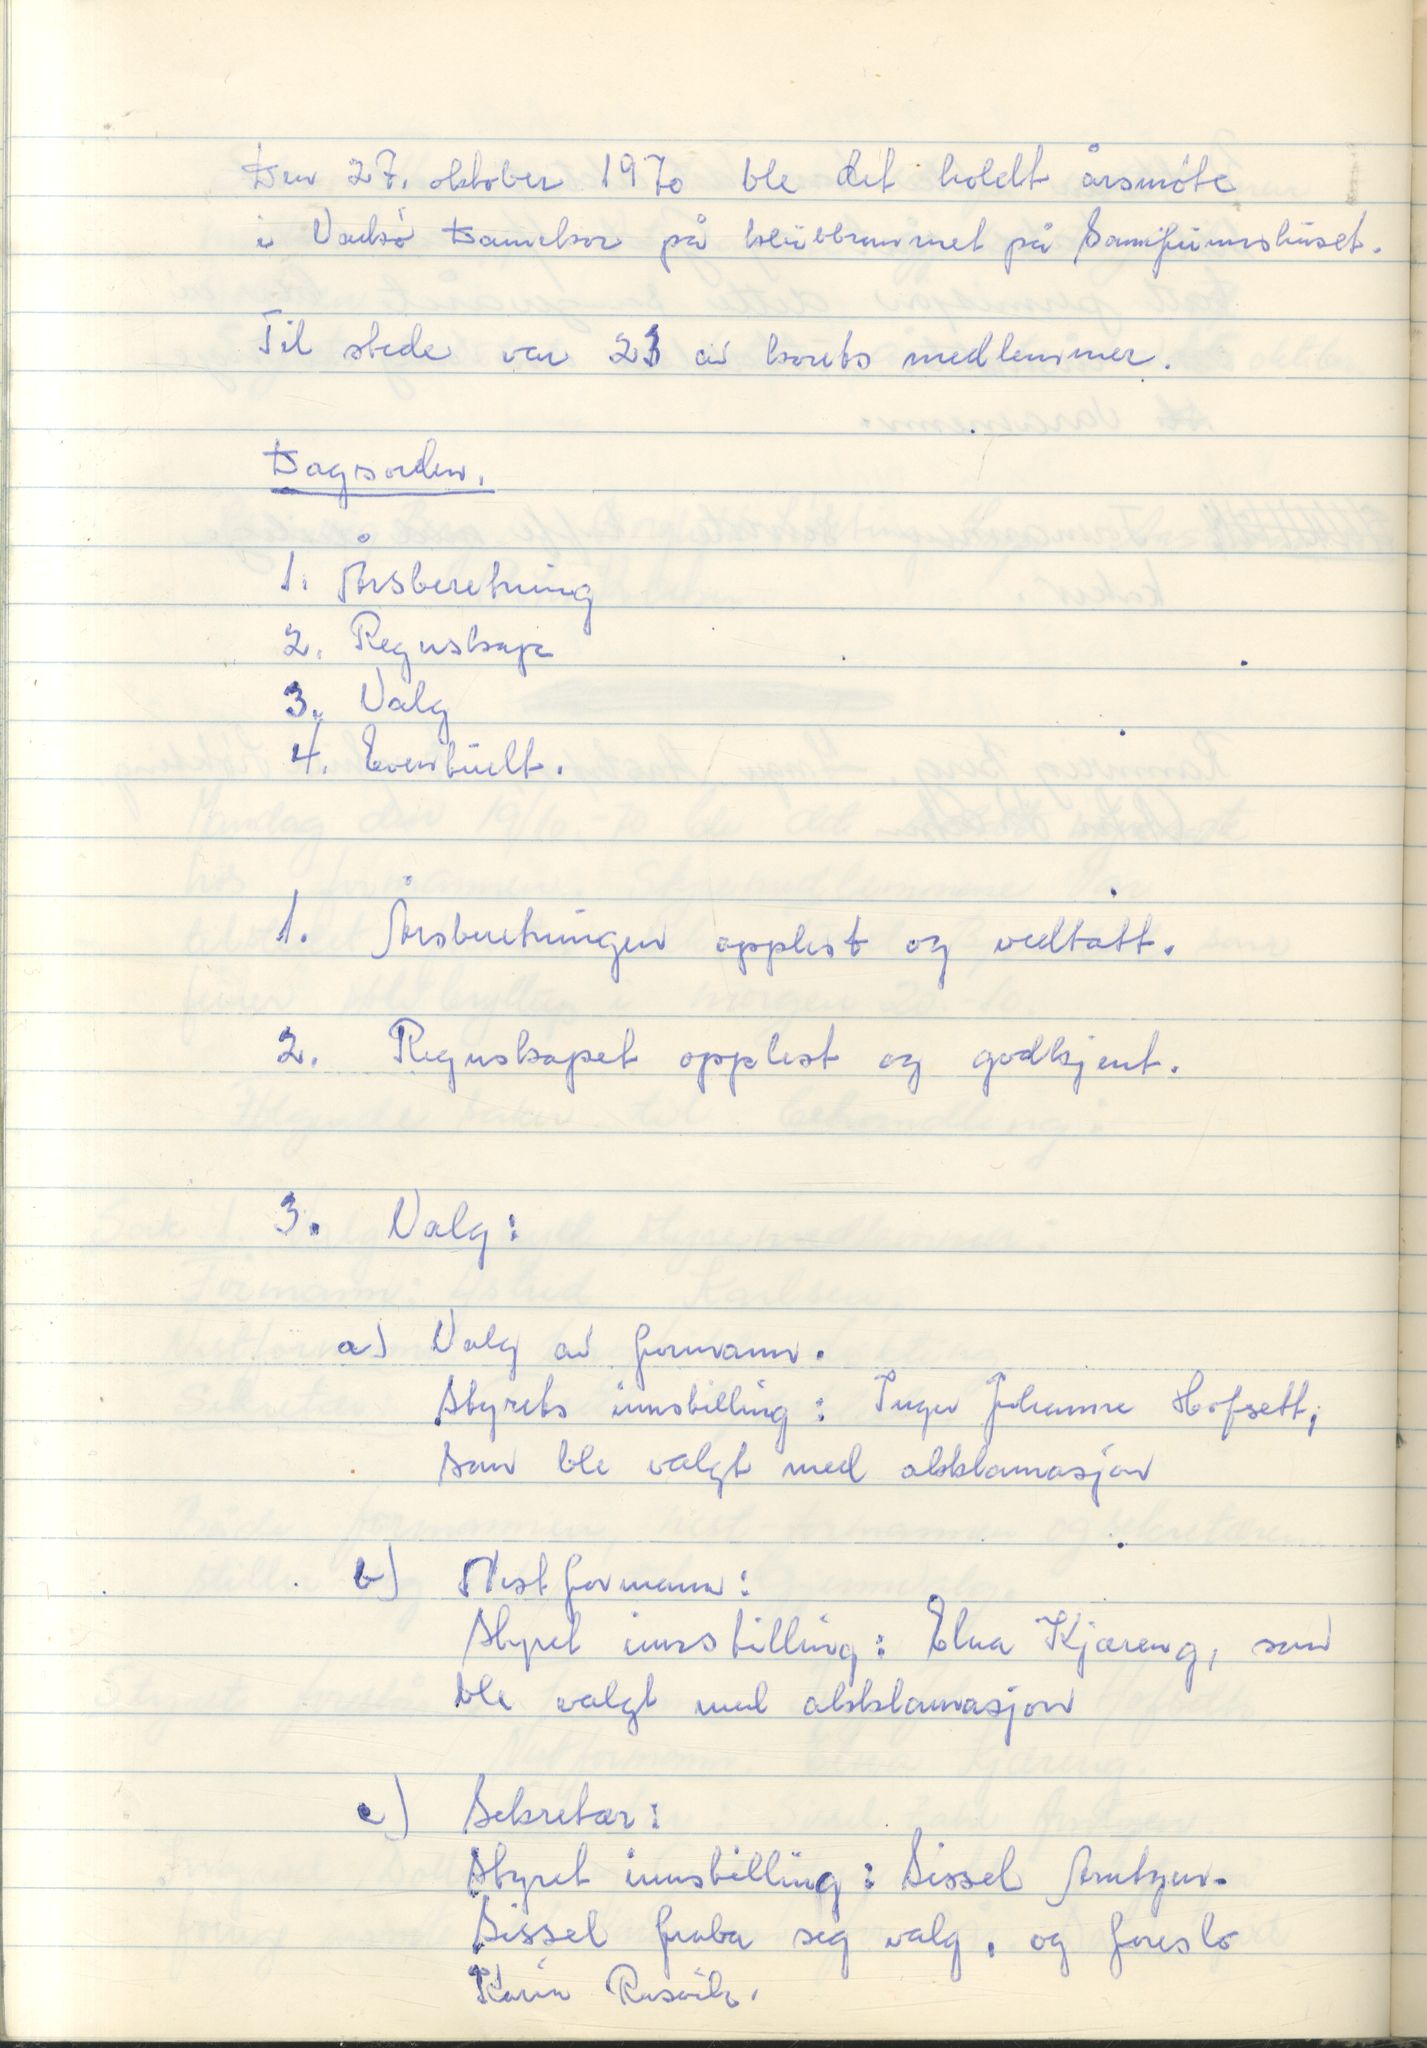 Den 27. oktober 1970 ble det holdt årsmöte
i Vadsö Damekor på klubbrommet på Samfunnshuset.
Til stede var 23 av korets medlemmer.
Dagsorden.
1. Årsberetning
2. Regnskap
3. Valg
4. Eventuelt.
1. Årsberetningen opplest og vedtatt.
2. Regnskapet opplest og godkjent.
3. Valg:
a) Valg av formann.
Styrets innstilling: Inger Johanne Hofsett,
som ble valgt med akklamasjon
b) Nestformann:
Styret innstilling: Elna Kjæreng, som
ble valgt med akklamasjon
c) Sekretær:
Styret innstilling: Sissel Arntzen.
Sissel fraba seg valg, og foreslo
Karin